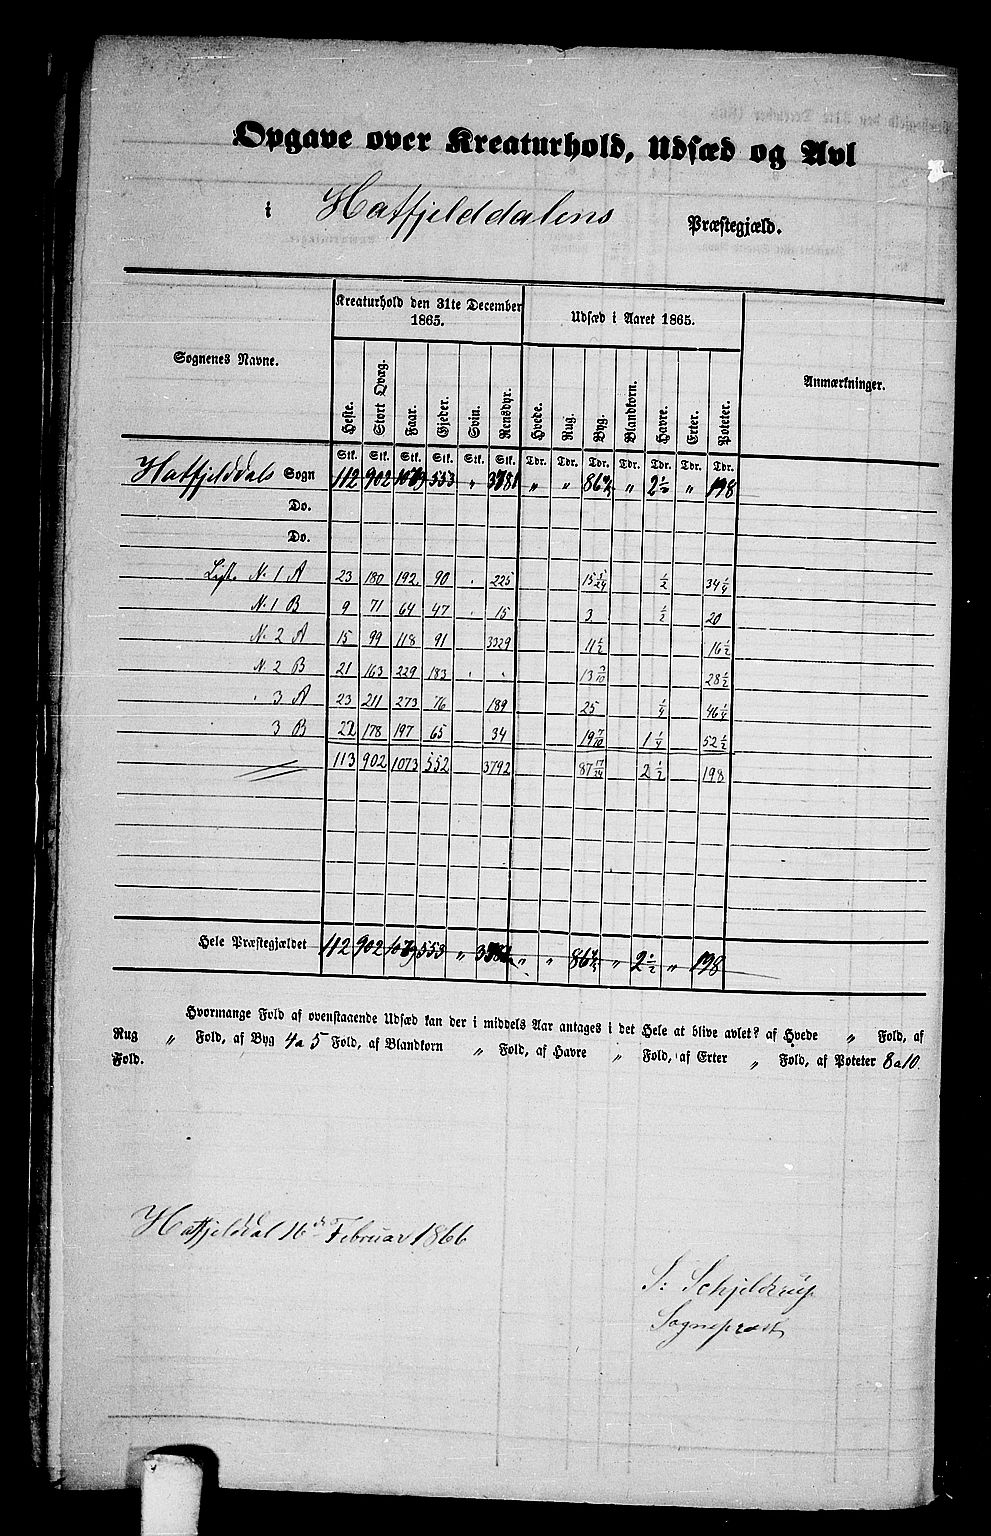 Opgave over Kreaturhold, Udsæd og Avl
i Hatfjelddalens Præstegjæld.
Sognenes Navne. Kreaturhold den 31te December 1865. Udsæd i Aaret 1865. Anmærkninger.
Heste. Stort Qvæg. Faar. Gjeder. Svin. Rensdyr. Hvede. Rug. Byg. Blandkorn. Havre. Erter. Poteter.
Stk. Stk. Stk. Stk. Stk. Stk. Tdr. Tdr. Tdr. Tdr. Tdr. Tdr. Tdr.
Hatfjelddals Sogn 112 902 1073 553 „ 3781 „ „ „ 2 1/2 „ 198
Do.
Do.
Liste N. 1 A 23 180 192 90 . 225 15 5/24 1/2 34 1/4
N. 1 B 9 71 64 47 . 15 3 1/2 20
N. 2 A 15 99 118 91 3329 11 1/2 16 1/2
N. 2 B 21 163 229 183 . . 13 3/10 28 1/2
" 3 A 23 211 273 76 189 25 1/4 46 1/4
3 B 22 178 197 65 34 19 7/10 1 1/4 52 1/2
113 902 1073 552 3792 87 17/24 2 1/2 198
Hele Præstegjældet 112 902 1073 553 „ 3781 „ „ „ 2 1/2 „ 198
Hvormange Fold af ovenstaaende Udsæd kan der i middels Aar antages i det Hele at blive avlet? af Hvede „ Fold, af
Rug „ Fold, af Byg 4 a 5 Fold, af Blandkorn „ Fold, af Havre „ Fold, af Erter „ Fold, af Poteter 8 a 10
Fold.
Hatfjelddal 16de Februar 1866
S: Schjeldrup
Sognepræst